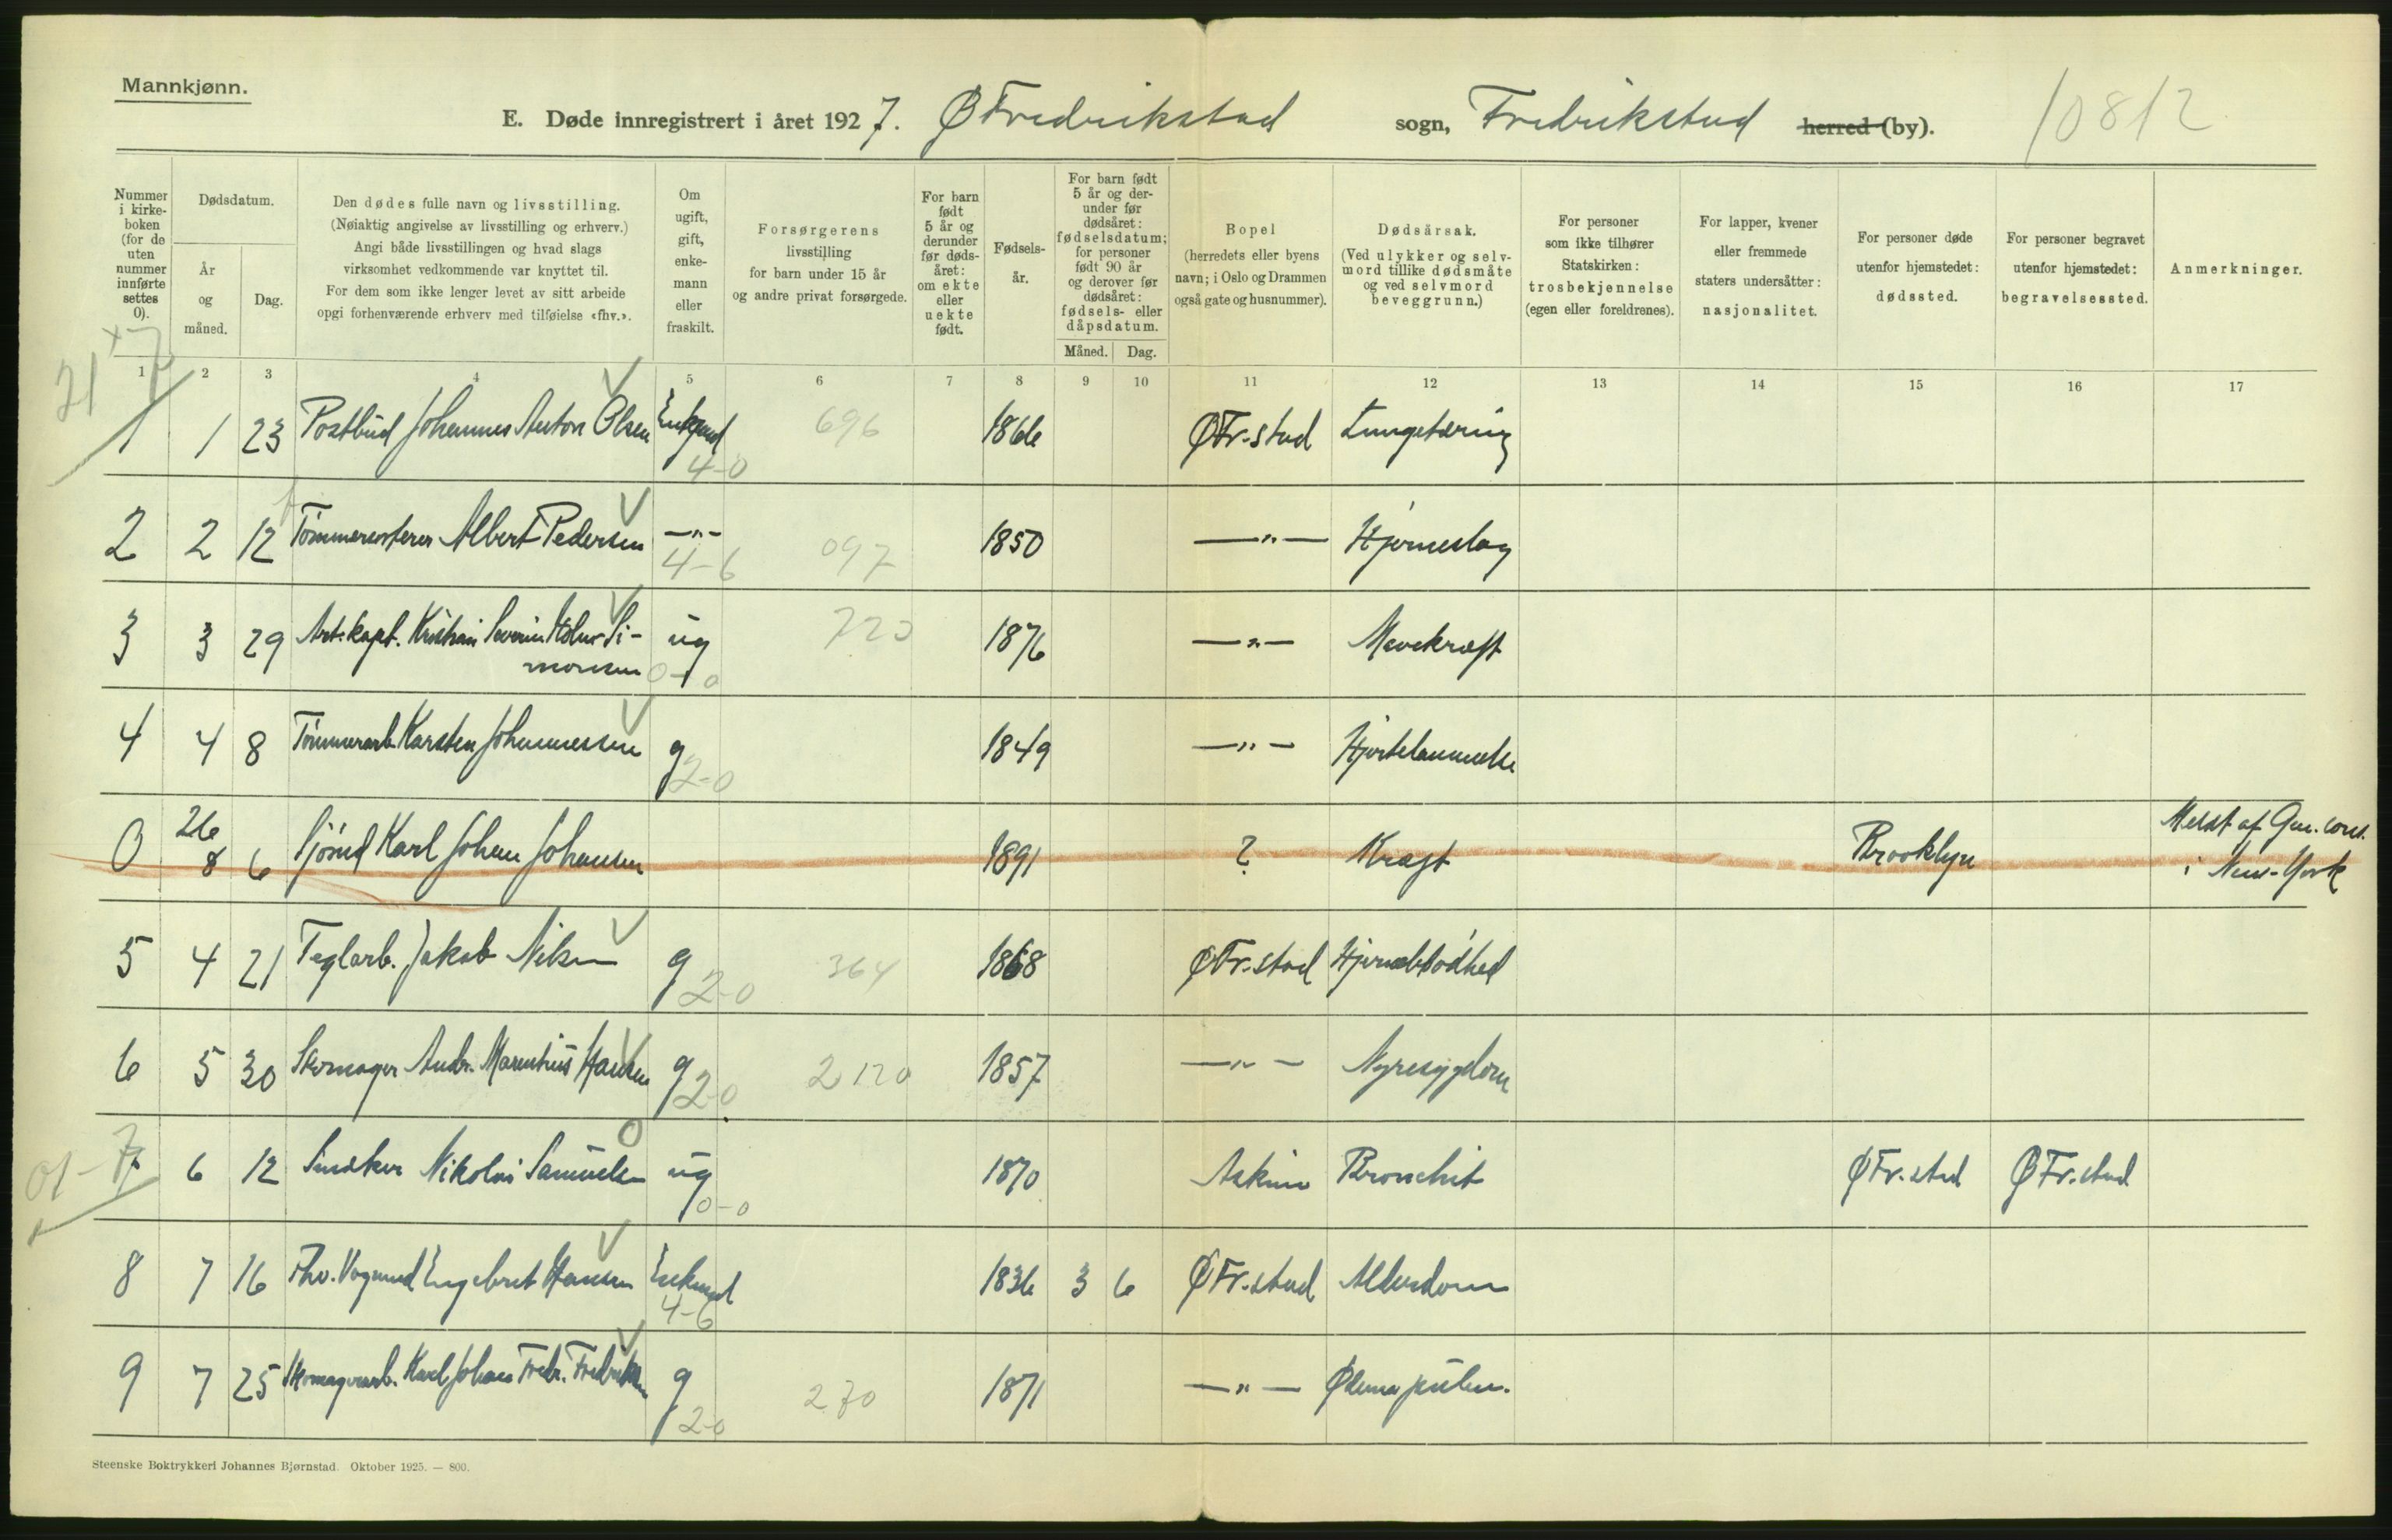 Mannkjønn.
E. Døde innregistrert i året 1927. ØFredrikstad sogn, Fredrikstad herred (by). 10812
Nummer i kirke-boken (for de uten nummer innførte settes 0).
Dødsdatum.
År og måned.
Dag.
Den dødes fulle navn og livsstilling.
(Nøiaktig angivelse av livsstilling og erhverv.)
Angi både livsstillingen og hvad slags
virksomhet vedkommende var knyttet til.
For dem som ikke lenger levet av sitt arbeide
opgi forhenværende erhverv med tilføielse «fhv.».
Om ugift, gift, enke-mann eller fraskilt.
Forsørgerens
livsstilling
for barn under 15 år
og andre privat forsørgede.
For barn født 5 år og derunder før døds-året: om ekte eller uekte født.
Fødsels-år.
For barn født 5 år og der-under før dødsåret: fødselsdatum; for personer født 90 år og derover før dødsåret: fødsels- eller dåpsdatum.
Måned. Dag.
Bopel
(herredets eller byens
navn; i Oslo og Drammen
også gate og husnummer).
Dødsårsak.
(Ved ulykker og selv-
mord tillike dødsmåte
og ved selvmord
beveggrunn.)
For personer
som ikke tilhører
Statskirken:
trosbekjennelse
(egen eller foreldrenes).
For lapper, kvener
eller fremmede
staters undersåtter:
nasjonalitet.
For personer døde
utenfor hjemstedet:
dødssted.
For personer begravet
utenfor hjemstedet:
begravelsessted.
Anmerkninger.
1 2 3 4 5 6 7 8 9 10 11 12 13 14 15 16 17
1 1 23 Postbud Johannes Anton Olsen Enkemd 4-0 696 1866 ØFr.stad Lungetæring
2 2 12 Albert Pedersen —"— 4-6 097 1850 —"— Hjerneslag
3 3 29 Art.kapt. Kristian Severin Si-
monsen ug 0-0 1876 —"— Mavekræft
4 4 8 Tømmerarb. Karsten Johannessen g 2-0 1849 —"— Hjertelammelse
0 26 8 6 Sjømd Karl Johan Johansen 1891 ? Kræft Brooklyn Meldt af Gen.cons.
i New-York
5 4 21 Teglarb. Jakob Nilsen g 2-0 364 1868 ØFr.stad Hjerneblødhed
6 5 30 Skomager Andr. Marentius Hansen g 2-0 2120 1857 —"— Nyresygdom
7 6 12 Snedker Nikolai Samuelsen ug 0-0 1870 Askim Bronchit ØFr.stad ØFr.stad
8 7 16 Fhv. Vognmd Engebret Hansen Enkemd 4-6 1836 3 6 ØFr.stad Alderdom
9 7 25 Skomagerarb. Karl Johan Fredr. Fredriksen g 2-0 270 1871 —"— Ødema pulm.
Steenske Boktrykkeri Johannes Bjørnstad. Oktober 1925. — 800.